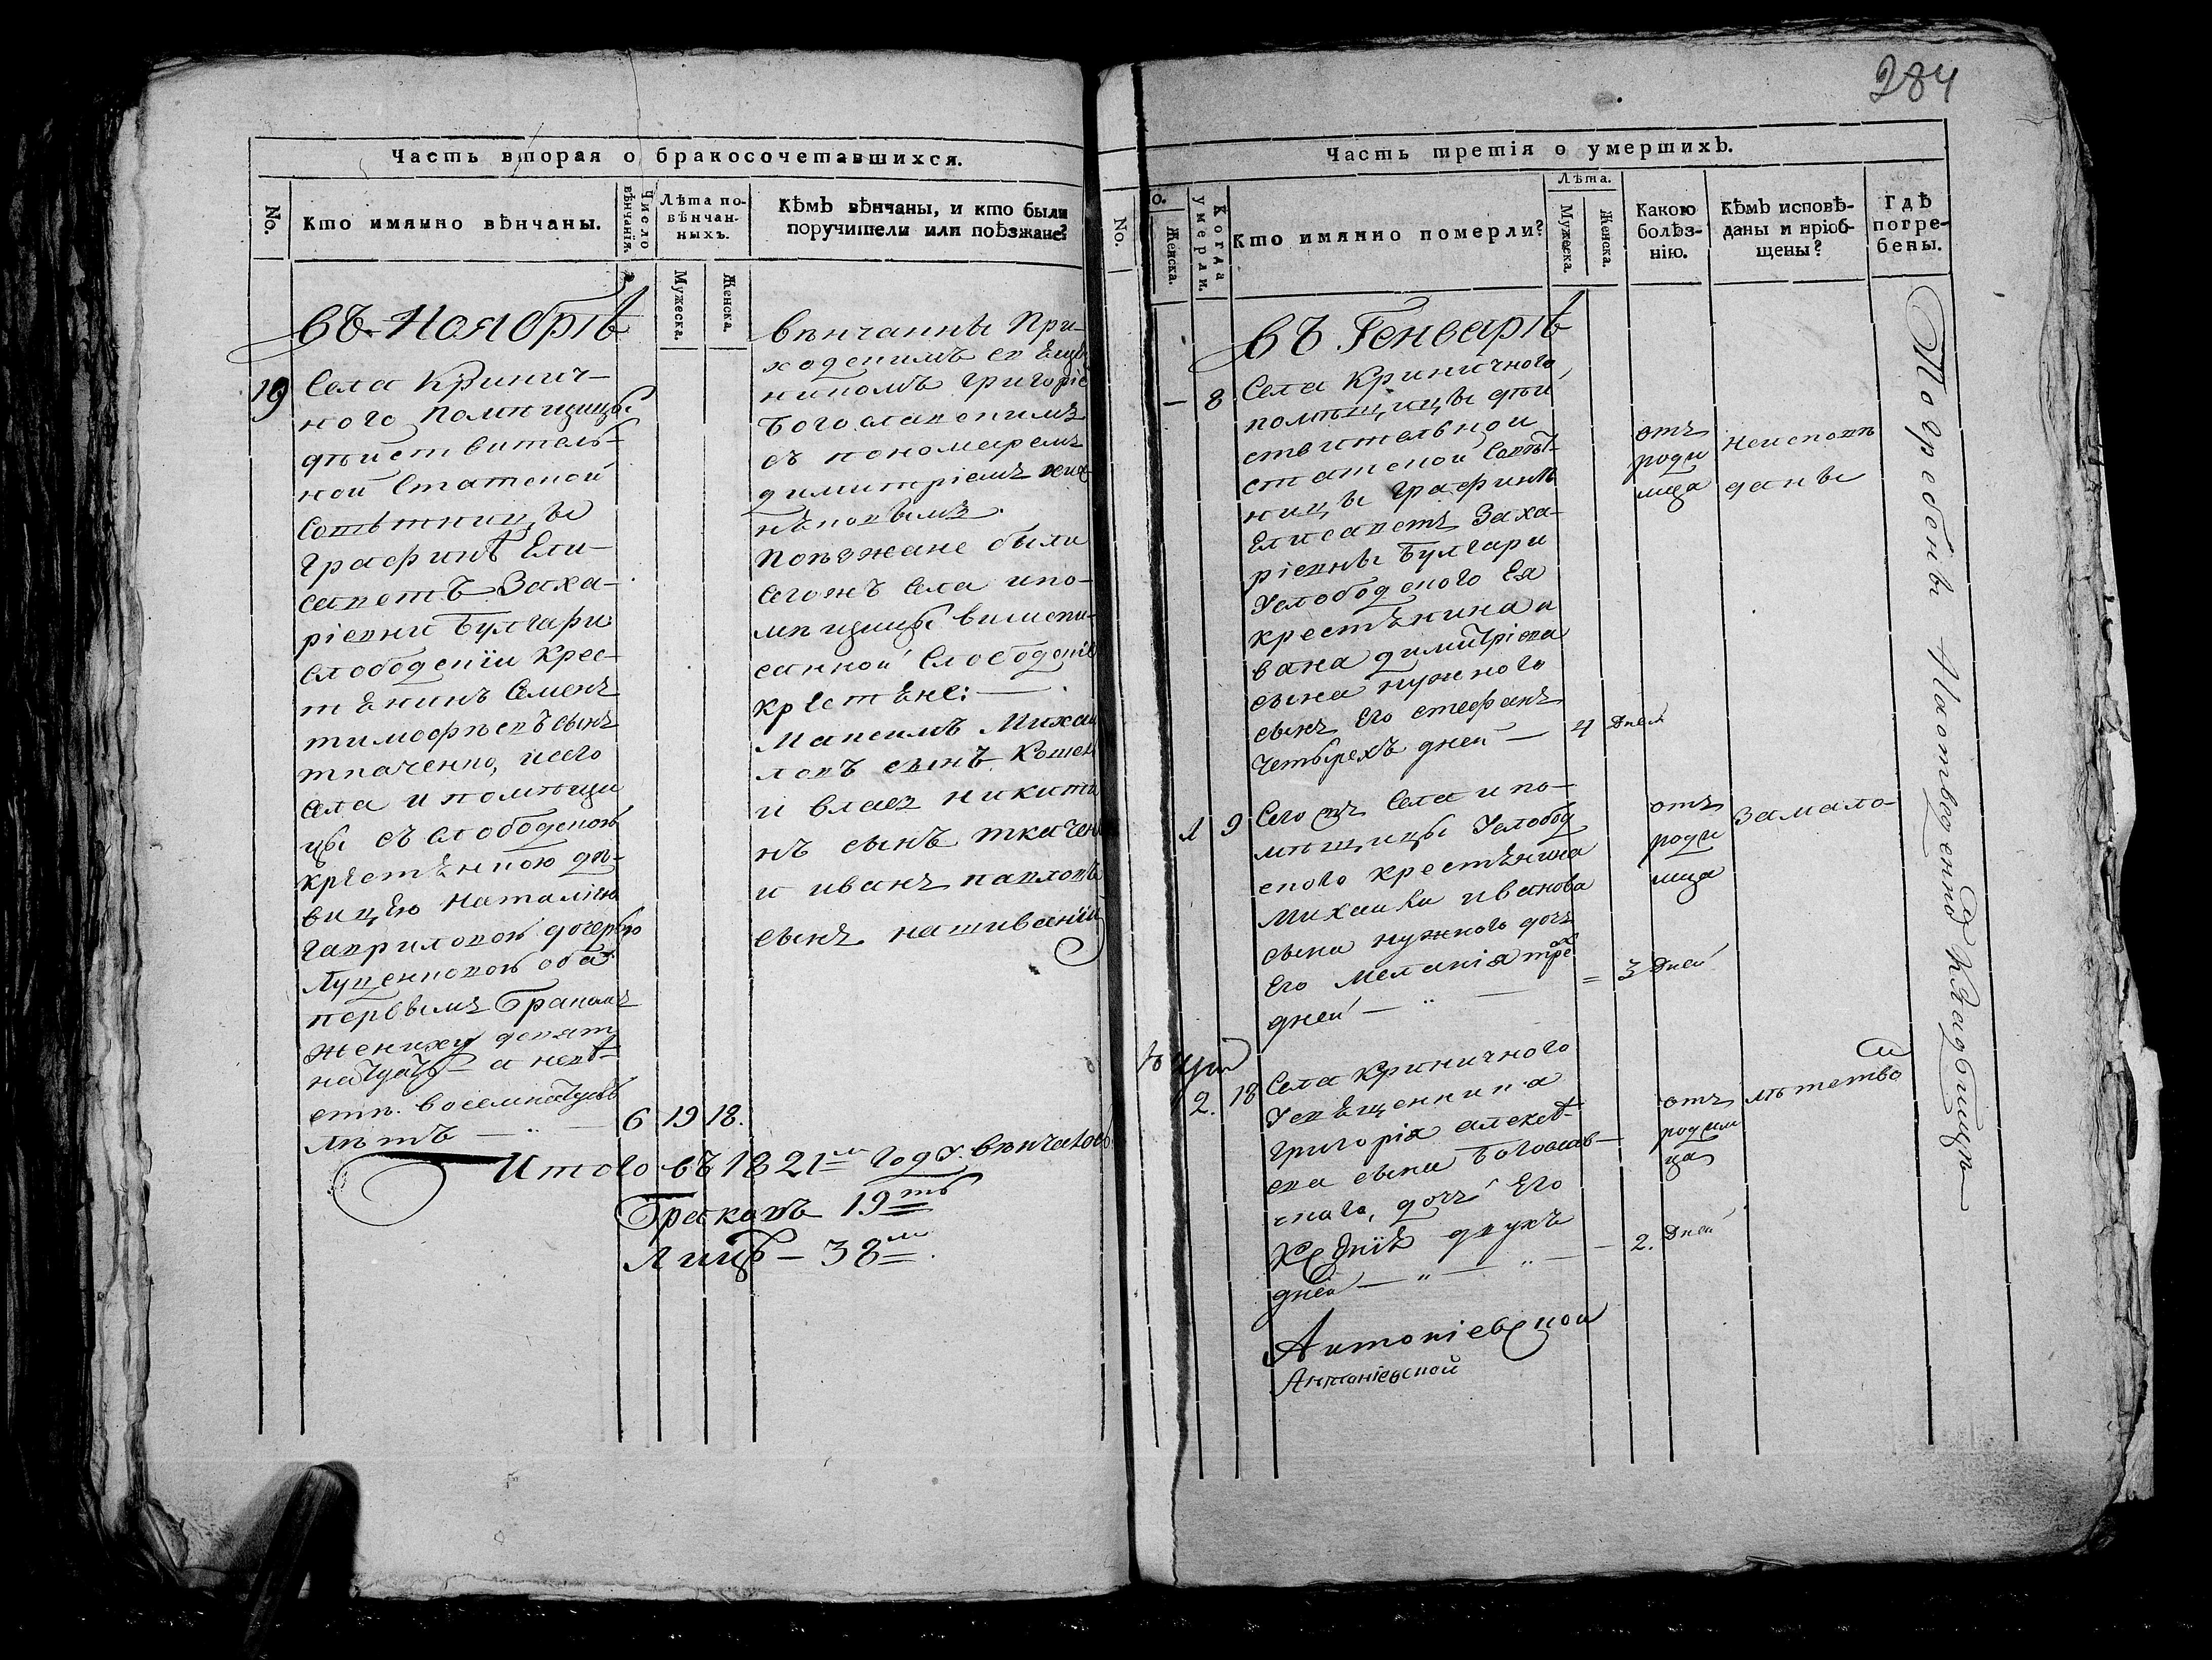 284
Часть вторая о бракосочетавшихся.
No.
Кто имянно вѣнчаны.
Число вѣнчанія.
Лѣта повѣнчанныхъ.
Мужеска.
Женска.
Кѣмъ вѣнчаны, и кто были
поручители или поѣзжане?
въ Ноябрѣ
19
Села Кринич-
ного помѣщицы
дѣйствитель-
ной Статской
Совѣтницы
Графинѣ Ели-
саветъ Заха-
ріевни Булгари
Слободскій Крес-
тянинъ Семенъ
тимофѣевъ сынъ
ткаченко, исего
Села и помѣщи
цы съ слободской
крестянкою дѣ-
вицею Наталіею
гавриловой дочерью
Луценковой оба
первымъ бракомъ
жениху девят
надцать а невѣ-
сти восемнадцать
лѣтъ — " — 6 19 18.
вѣнчанны При-
ходскимъ Священ
никомъ григоріе
Богославскимъ
съ пономаремъ
димитріемъ
Поѣзжане были
Сегожъ Села ипо-
мѣщицы вишепи-
санной Слободскіе
крестяне:
Максимъ Михаи
ловъ сынъ Кошел
и влас никити
нъ сынъ ткачен
и иванъ павловъ
сынъ нашиваній
Итого въ 1821м году вѣнчано
Браковъ 19ть
Лицъ — 38м
Часть третія о умершихъ.
No.
No.
Женска.
Когда умерли.
Кто имянно померли?
Лѣта.
Мужеска.
Женска.
Какою
болѣз-
нію.
Кѣмъ исповѣ-
даны и пріоб-
щены?
Гдѣ
погре-
бены.
въ Генварѣ
— 8 Села Криничного,
помѣщицы дѣй
ствительной
статской Совѣт-
ницы графинѣ
Елисаветъ Заха-
ріевны Булгари
Услободского Ея
крестянина и
вана димитріева
сына нужного
сынъ Его стефанъ
Четырехъ дней — 4 Дней
отъ
роди
мца
неисповѣ
даны
1 9 Сегожъ Села и по-
мѣщицы Услобод
ского крестянина
Михаила иванова
сына нужного дочь
Его Мелания трех
дней — " — = 3 Дней
отъ
роди
мца
За мало-
2. 18 Села Криничного
Священника
григорія алексѣ-
ева сына Богослав-
ского, дочь Его
двухъ
дней — " — " — 2. Дней
отъ
родим
ца
лѣтство
Погребены На отведенно Кладбищи
Антоніевской
Антоніевской